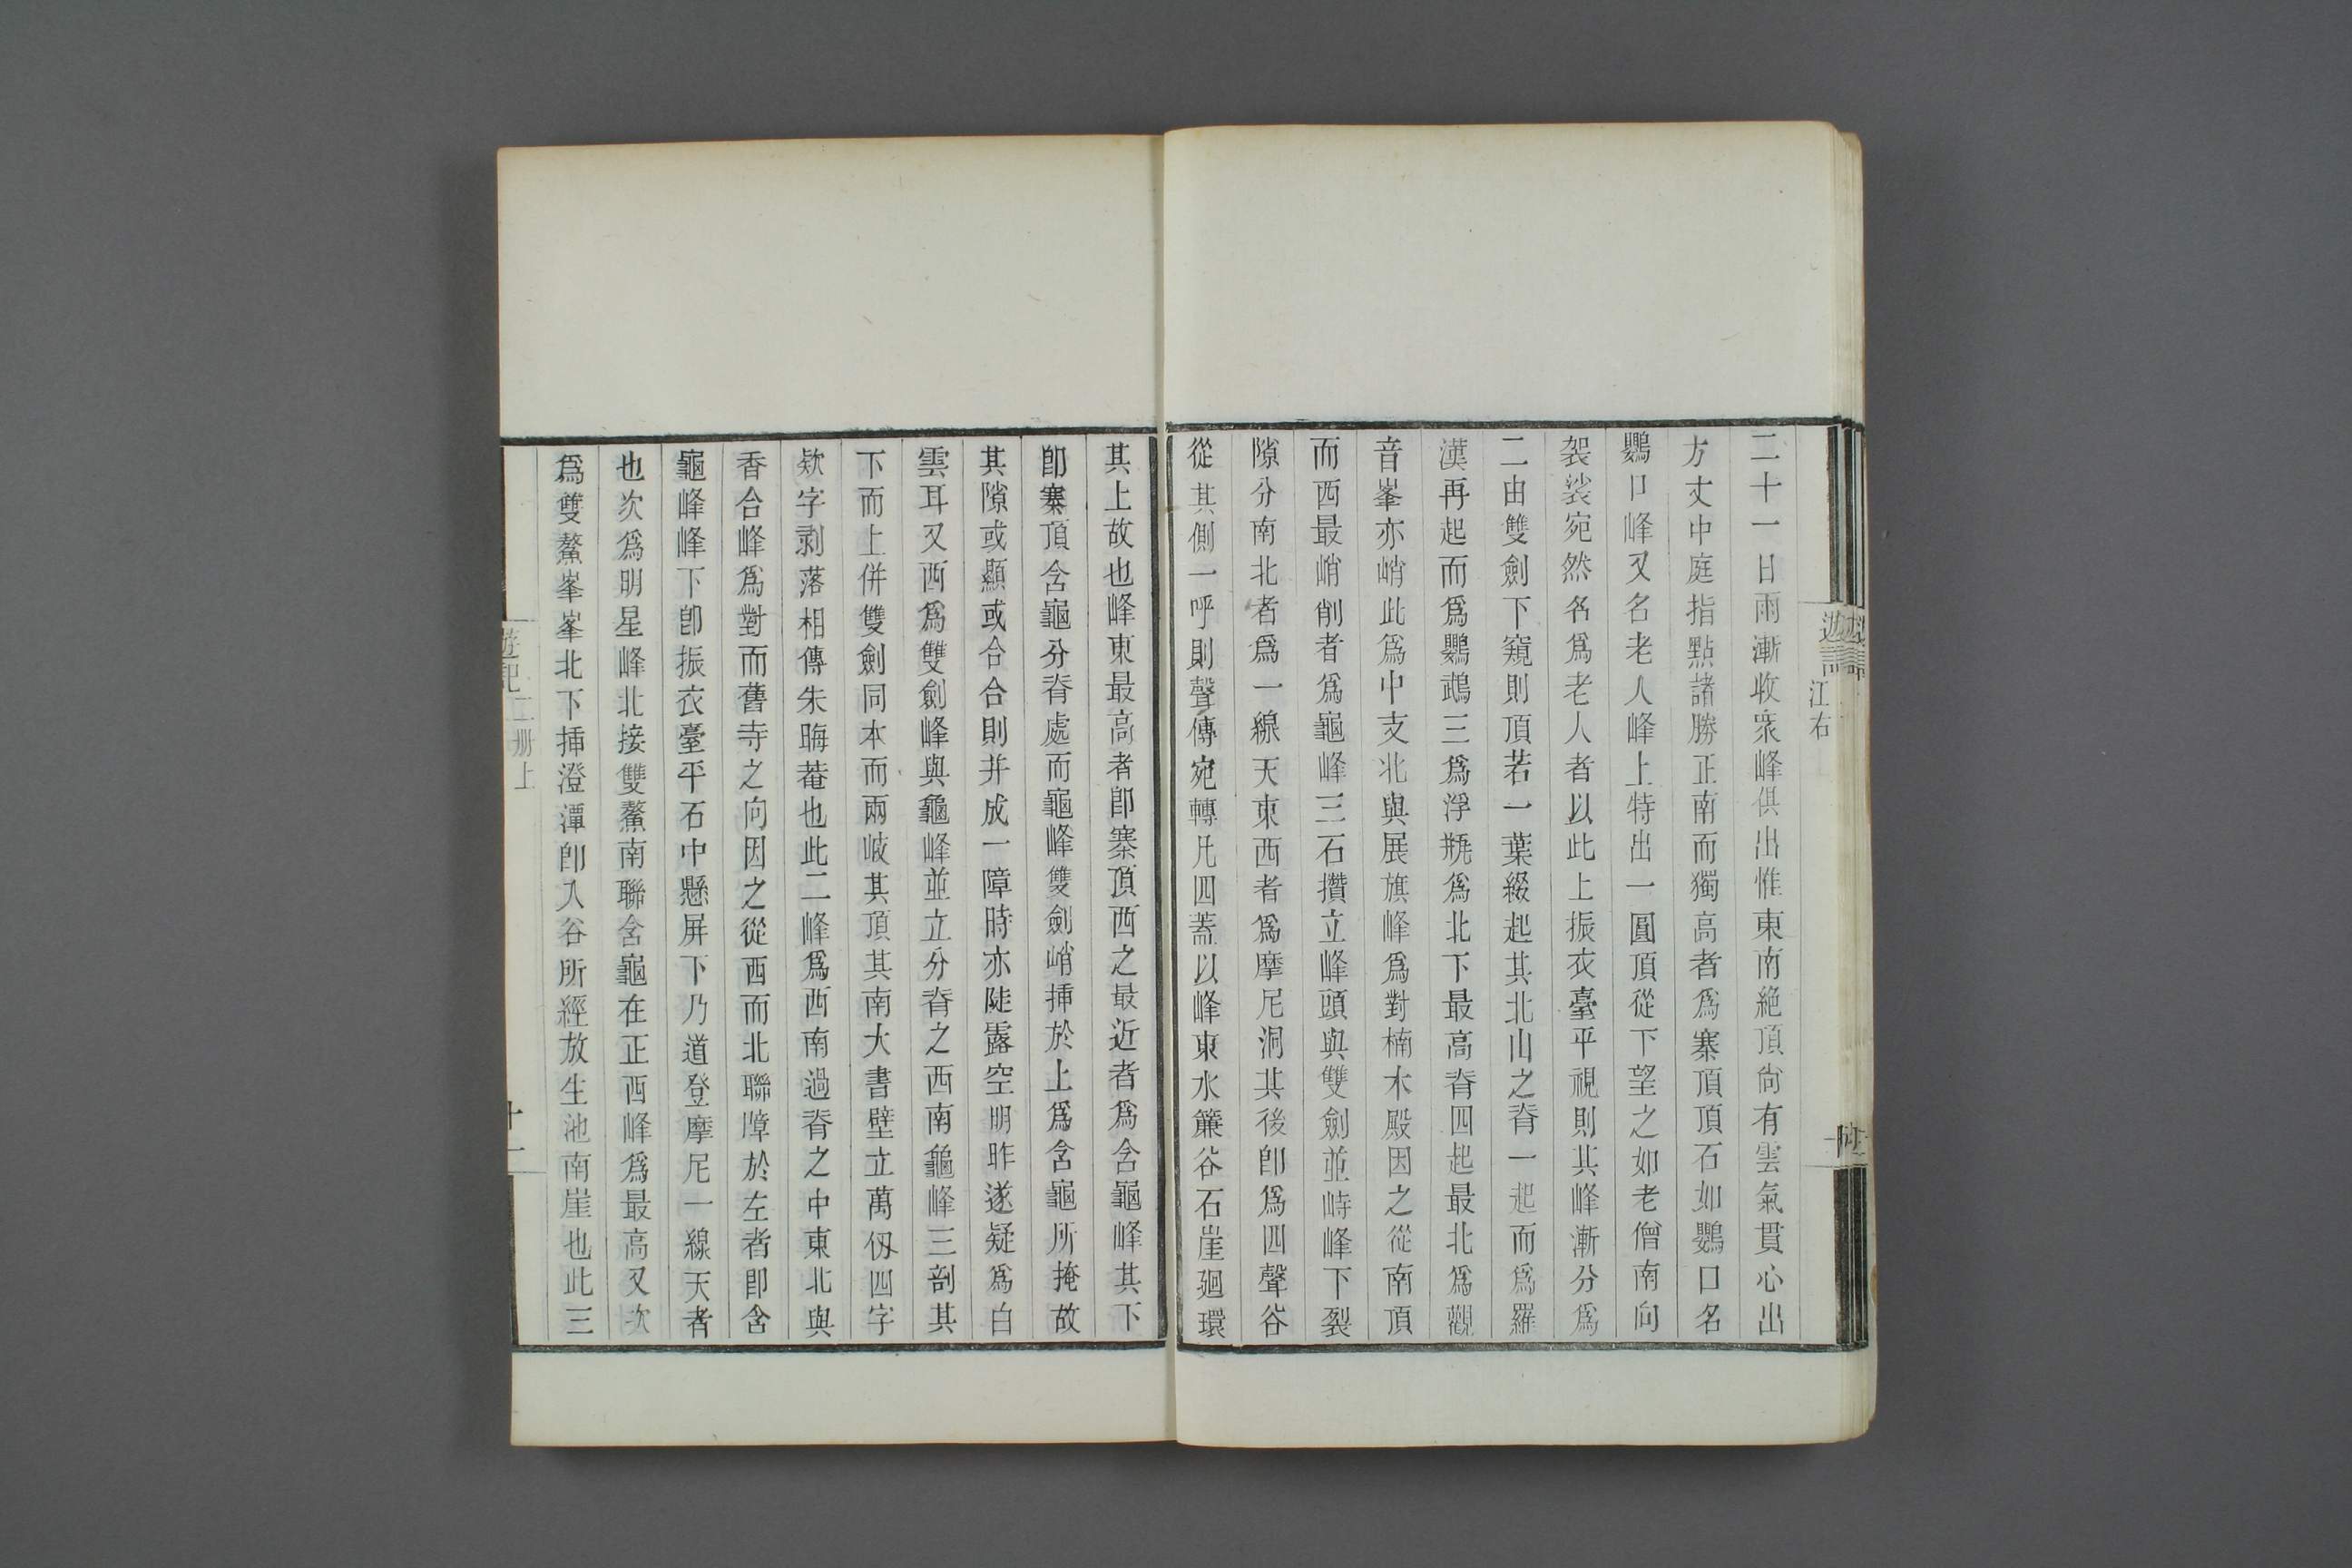 江右
二十一日雨漸收衆峰俱出惟東南絶頂尙有雲氣貫心出
方丈中庭指點諸勝正南而獨高者爲寨頂頂石如鸚口名
鸚口峰又名老人峰上特出一圓頂從下望之如老僧南向
袈裟宛然名爲老人者以此上振衣臺平視則其峰漸分爲
二由雙劍下窺則頂若一葉綴起其北山之脊一起而爲羅
漢再起而爲鸚鵡三爲浮瓶爲北下最高脊四起最北爲觀
音峯亦峭此爲中支北與展旗峰爲對楠木殿因之從南頂
而西最峭削者爲龜峰三石攢立峰頭與雙劍並峙峰下裂
隙分南北者爲一線天東西者爲摩尼洞其後卽爲四聲谷
從其側一呼則聲傳宛轉凡四蓋以峰東水簾谷石崖廻環
其上故也峰東最高者卽寨頂西之最近者爲含龜峰其下
卽寨頂含龜分脊處而龜峰雙劍峭揷於上爲含龜所掩故
其隙或顯或合合則并成一障時亦陡露空明昨遂疑爲白
雲耳又西爲雙劍峰與龜峰並立分脊之西南龜峰三剖其
下而上併雙劍同本而兩岐其頂其南大書壁立萬仭四字
欵字剥落相傳朱晦菴也此二峰爲西南過脊之中東北與
香合峰爲對而舊寺之向因之從西而北聯障於左者卽含
龜峰峰下卽振衣臺平石中懸屏下乃道登摩尼一線天者
也次爲明星峰北接雙鰲南聯含龜在正西峰爲最高又次
爲雙鰲峯峯北下揷澄潭卽入谷所經放生池南崖也此三
遊記二册上
十一